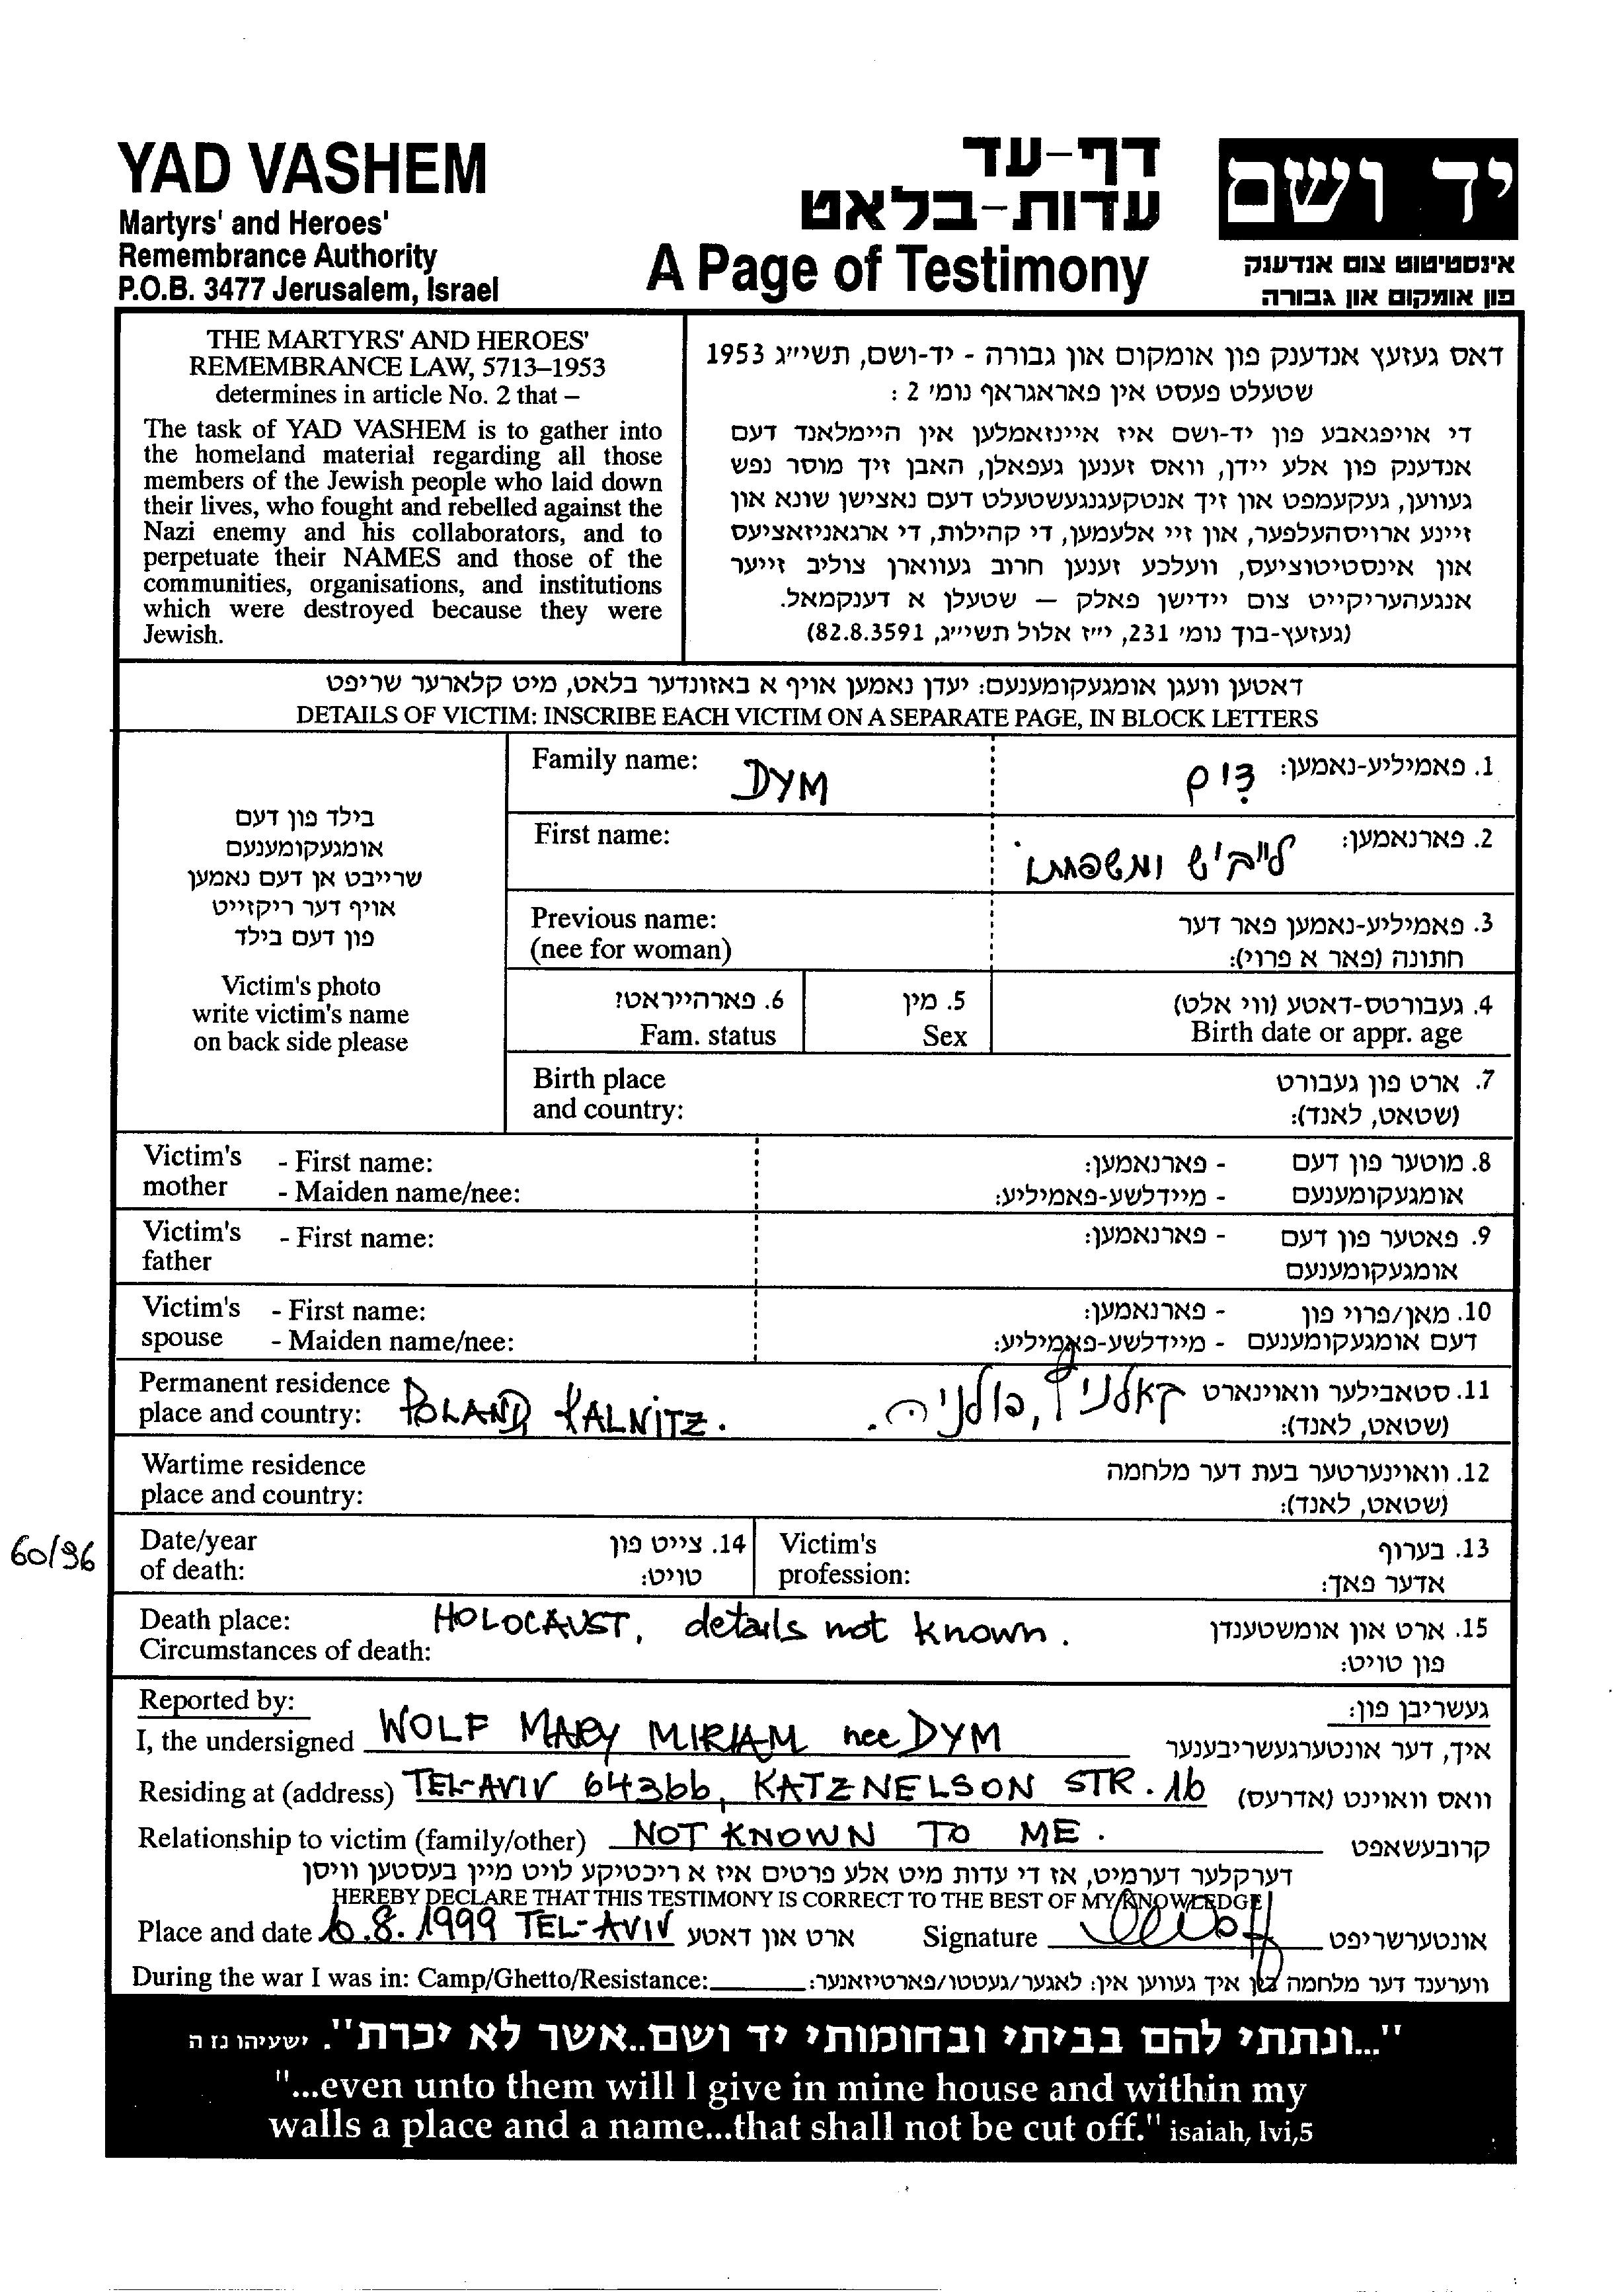 YAD VASHEM
Martyrs' and Heroes'
Remembrance Authority
P.O.B. 3477 Jerusalem, Israel
דף-עד
עדות-בלאט
A Page of Testimony
יד ושם
אינסטיטוט צום אנדענק
פון אומקום און גבורה
THE MARTYRS' AND HEROES'
REMEMBRANCE LAW, 5713–1953
determines in article No. 2 that –
The task of YAD VASHEM is to gather into
the homeland material regarding all those
members of the Jewish people who laid down
their lives, who fought and rebelled against the
Nazi enemy and his collaborators, and to
perpetuate their NAMES and those of the
communities, organisations, and institutions
which were destroyed because they were
Jewish.
דאס געזעץ אנדענק פון אומקום און גבורה - יד-ושם, תשי״ג 1953
שטעלט פעסט אין פאראגראף נומ׳ 2 :
די אויפגאבע פון יד-ושם איז איינזאמלען אין היימלאנד דעם
אנדענק פון אלע יידן, וואס זענען געפאלן, האבן זיך מוסר נפש
געווען, געקעמפט און זיך אנטקעגנגעשטעלט דעם נאצישן שונא און
זיינע ארויסהעלפער, און זיי אלעמען, די קהילות, די ארגאניזאציעס
און אינסטיטוציעס, וועלכע זענען חרוב געווארן צוליב זייער
אנגעהעריקייט צום יידישן פאלק – שטעלן א דענקמאל.
(געזעץ-בוך נומ׳ 231, י״ז אלול תשי״ג, 82.8.3591)
דאטען וועגן אומגעקומענעם: יעדן נאמען אויף א באזונדער בלאט, מיט קלארער שריפט
DETAILS OF VICTIM: INSCRIBE EACH VICTIM ON A SEPARATE PAGE, IN BLOCK LETTERS
בילד פון דעם
אומגעקומענעם
שרייבט אן דעם נאמען
אויף דער ריקזייט
פון דעם בילד
Victim's photo
write victim's name
on back side please
Family name: DYM דים 1. פאמיליע-נאמען:
First name: לייביש ומשפחתו. 2. פארנאמען:
Previous name: 3. פאמיליע-נאמען פאר דער
(nee for woman) חתונה (פאר א פרוי):
6. פארהייראט? 5. מין 4. געבורטס-דאטע (ווי אלט)
Fam. status Sex Birth date or appr. age
Birth place 7. ארט פון געבורט
and country: (שטאט, לאנד):
Victim's - First name: - פארנאמען: 8. מוטער פון דעם
mother - Maiden name/nee: - מיידלשע-פאמיליע: אומגעקומענעם
Victim's - First name: - פארנאמען: 9. פאטער פון דעם
father אומגעקומענעם
Victim's - First name: - פארנאמען: 10. מאן/פרוי פון
spouse - Maiden name/nee: - מיידלשע-פאמיליע: דעם אומגעקומענעם
Permanent residence 11. סטאבילער וואוינארט
place and country: POLAND KALNITZ. קאלניץ, פולניה. (שטאט, לאנד):
Wartime residence 12. וואוינערטער בעת דער מלחמה
place and country: (שטאט, לאנד):
60/96
Date/year 14. צייט פון Victim's 13. בערוף
of death: טויט: profession: אדער פאך:
Death place: HOLOCAUST, details not known. 15. ארט און אומשטענדן
Circumstances of death: פון טויט:
Reported by: געשריבן פון:
I, the undersigned WOLF MARY MIRIAM nee DYM איך, דער אונטערגעשריבענער
Residing at (address) TEL-AVIV 64366, KATZNELSON STR. 16 וואס וואוינט (אדרעס)
Relationship to victim (family/other) NOT KNOWN TO ME. קרובהשאפט
דערקלער דערמיט, אז די עדות מיט אלע פרטים איז א ריכטיקע לויט מיין בעסטען וויסן
HEREBY DECLARE THAT THIS TESTIMONY IS CORRECT TO THE BEST OF MY KNOWLEDGE
Place and date 6.8.1999 TEL-AVIV ארט און דאטע Signature אונטערשריפט
During the war I was in: Camp/Ghetto/Resistance: ווערענד דער מלחמה בין איך געווען אין: לאגער/געטטו/פארטיזאנער:
"...ונתתי להם בביתי ובחומותי יד ושם..אשר לא יכרת". ישעיהו נז ה
"...even unto them will I give in mine house and within my
walls a place and a name...that shall not be cut off." isaiah, lvi,5